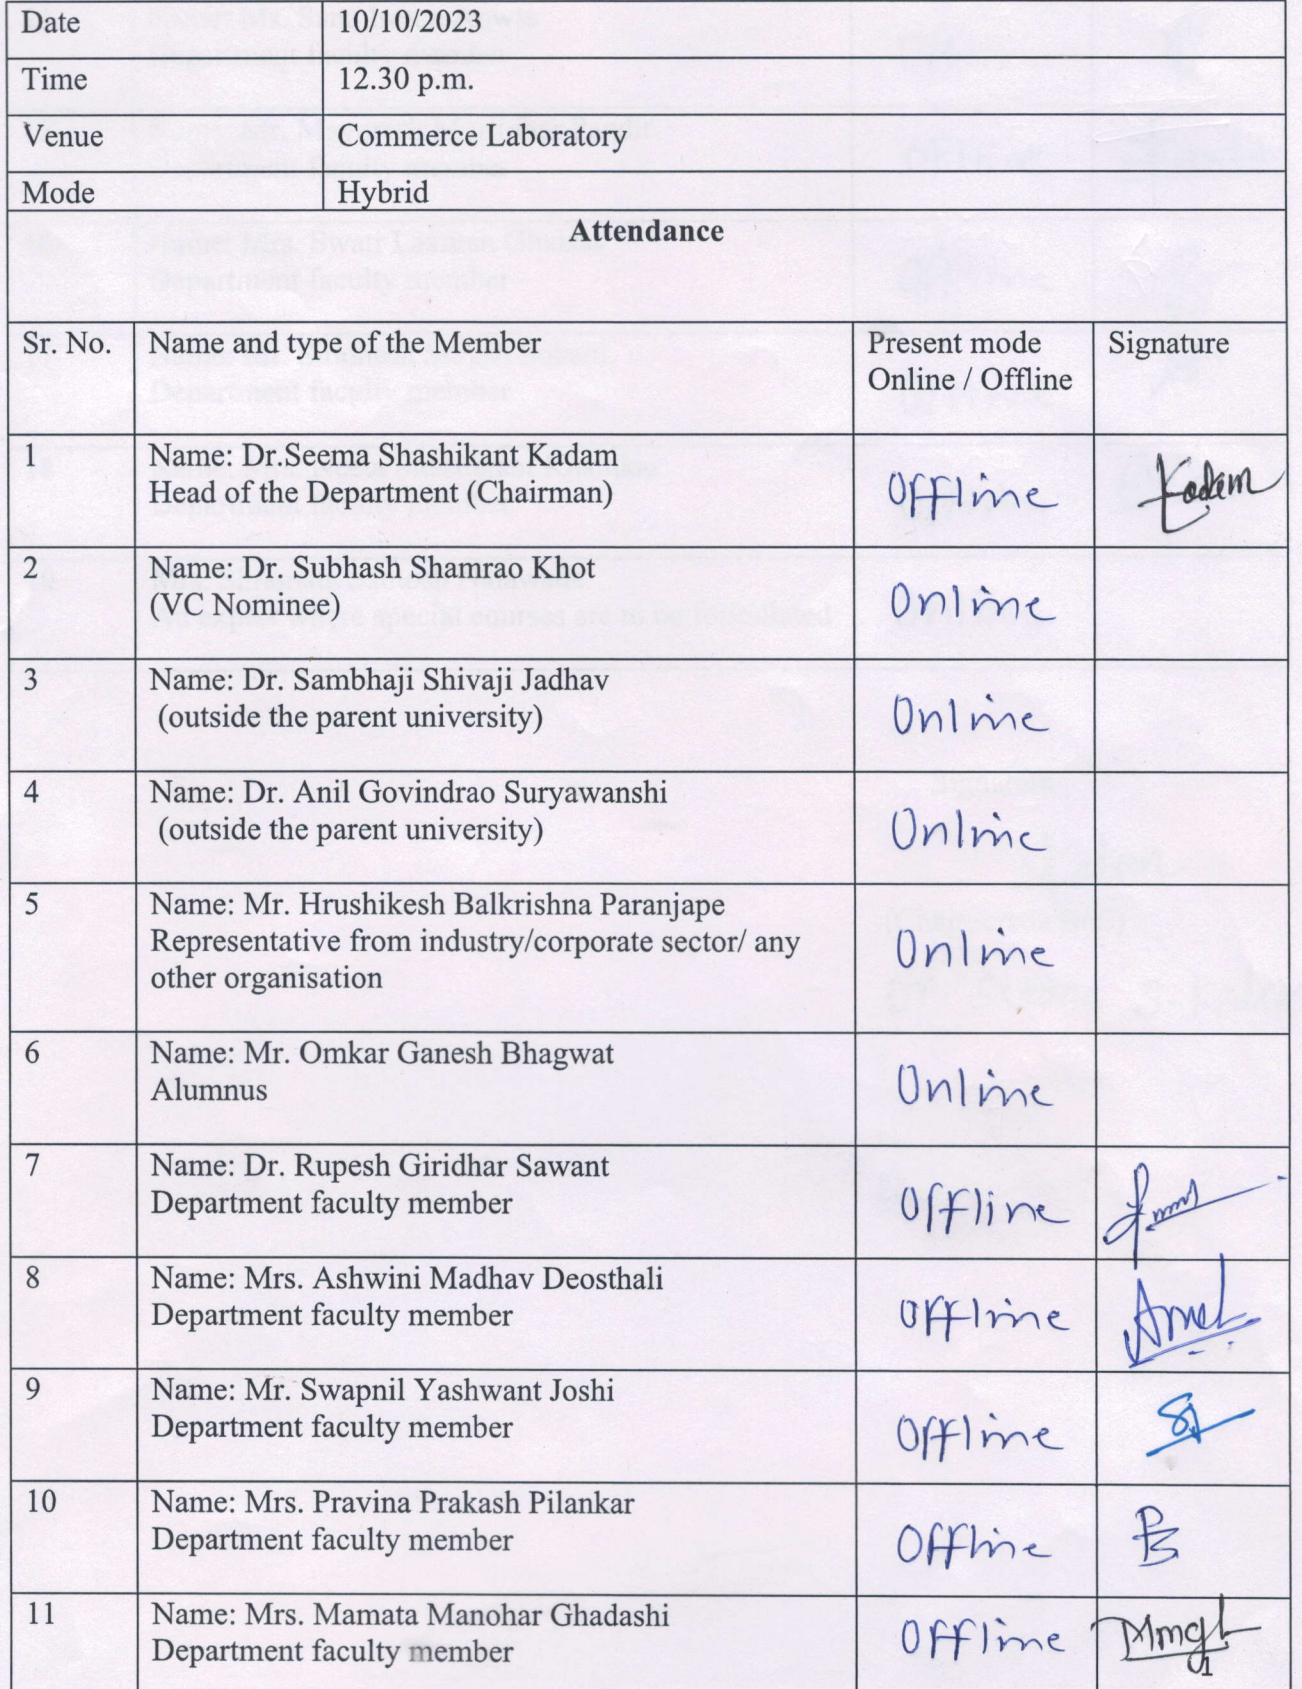 Date 10/10/2023
Time 12.30 p.m.
Venue Commerce Laboratory
Mode Hybrid
Attendance
Sr. No. Name and type of the Member Present mode Signature
Online / Offline
1 Name: Dr.Seema Shashikant Kadam
Head of the Department (Chairman) Offline Kadam
2 Name: Dr. Subhash Shamrao Khot
(VC Nominee) Online
3 Name: Dr. Sambhaji Shivaji Jadhav
(outside the parent university) Online
4 Name: Dr. Anil Govindrao Suryawanshi
(outside the parent university) Online
5 Name: Mr. Hrushikesh Balkrishna Paranjape
Representative from industry/corporate sector/ any Online
other organisation
6 Name: Mr. Omkar Ganesh Bhagwat
Alumnus Online
7 Name: Dr. Rupesh Giridhar Sawant
Department faculty member Offline
8 Name: Mrs. Ashwini Madhav Deosthali
Department faculty member Offline
9 Name: Mr. Swapnil Yashwant Joshi
Department faculty member Offline
10 Name: Mrs. Pravina Prakash Pilankar
Department faculty member Offline
11 Name: Mrs. Mamata Manohar Ghadashi
Department faculty member Offline
1